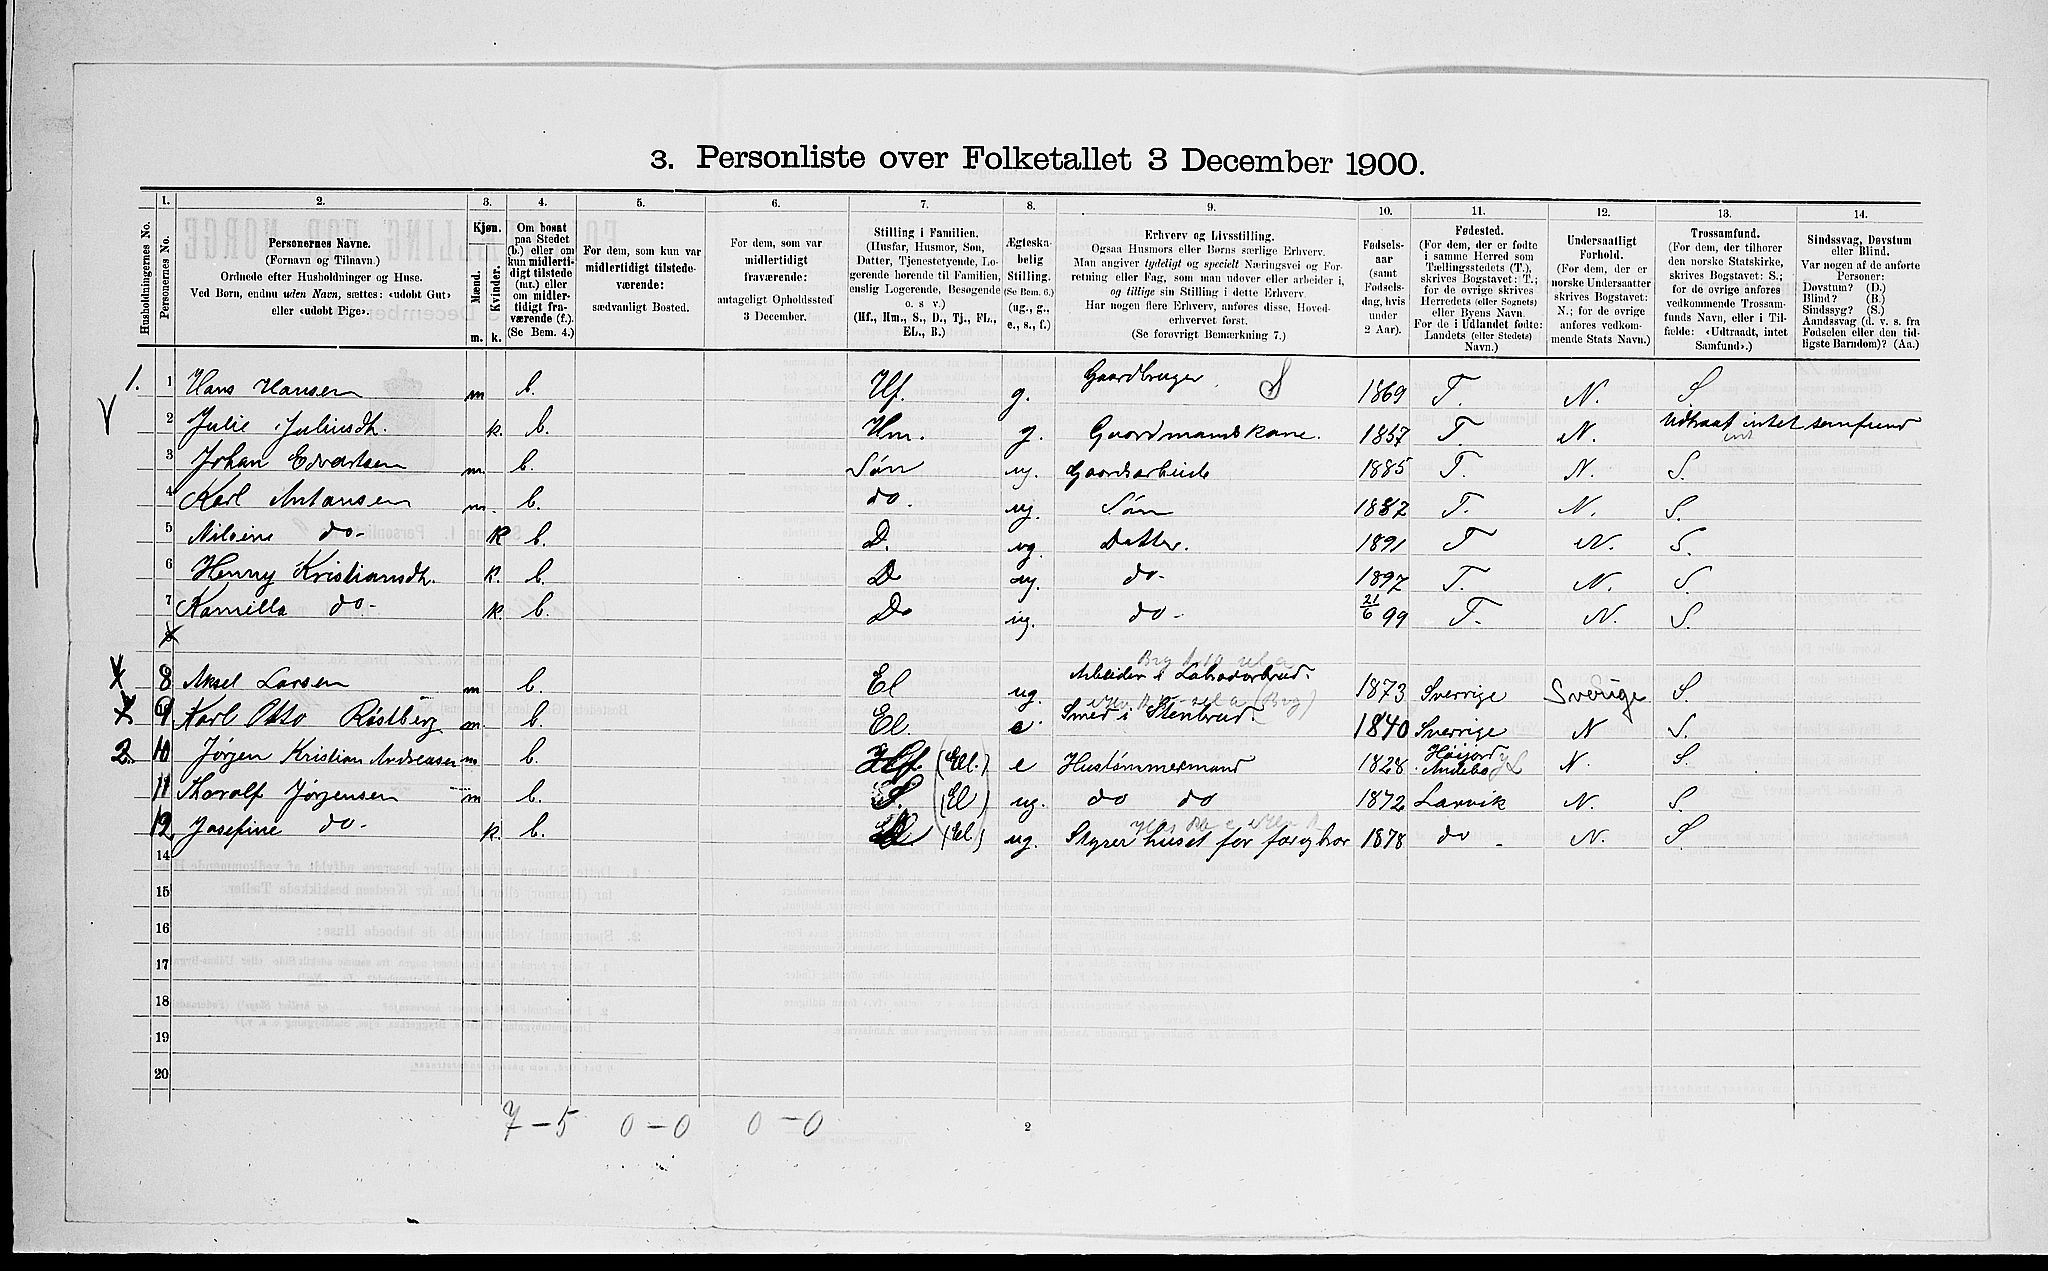 3. Personliste over Folketallet 3 December 1900.
Husholdningernes No.
1.
Personernes No.
2.
Personernes Navne.
(Fornavn og Tilnavn.)
Ordnede efter Husholdninger og Huse.
Ved Børn, endnu uden Navn, sættes: «udøbt Gut»
eller «udøbt Pige».
3.
Kjøn.
Mænd.
Kvinder.
m. k.
4.
Om bosat
paa Stedet
(b.) eller om
kun midlerti-
digt tilstede
(mt.) eller
om midler-
tidigt fra-
værende (f.).
(Se Bem. 4.)
5.
For dem, som kun var
midlertidigt tilstede-
værende:
sædvanligt Bosted.
6.
For dem, som var
midlertidigt
fraværende:
antageligt Opholdssted
3 December.
7.
Stilling i Familien.
(Husfar, Husmor, Søn,
Datter, Tjenestetyende, Lo-
gerende hørende til Familien,
enslig Logerende, Besøgende
o. s v.)
(Hf., Hm., S., D., Tj., FL.,
EL., B.)
8.
Ægteska-
belig
Stilling.
(Se Bem. 6.)
(ug., g.,
e., s., f.)
9.
Erhverv og Livsstilling.
Ogsaa Husmors eller Børns særlige Erhverv.
Man angiver tydeligt og specielt Næringsvei og For-
retning eller Fag, som man udøver eller arbeider i,
og tillige sin Stilling i dette Erhverv.
Har nogen flere Erhverv, anføres disse, Hoved-
erhvervet først.
(Se forøvrigt Bemærkning 7.)
10.
Fødsels-
aar
(samt
Fødsels-
dag, hvis
under
2 Aar).
11.
Fødested.
(For dem, der er fødte
i samme Herred som
Tællingsstedets (T.),
skrives Bogstavet: T.;
for de øvrige skrives
Herredets (eller Sognets)
eller Byens Navn.
For de i Udlandet fødte:
Landets (eller Stedets)
Navn.)
12.
Undersaatligt
Forhold.
(For dem, der er
norske Undersaatter
skrives Bogstavet:
N.; for de øvrige
anføres vedkom-
mende Stats Navn.)
13.
Trossamfund.
(For dem, der tilhører
den norske Statskirke,
skrives Bogstavet: S.;
for de øvrige anføres
vedkommende Trossam-
funds Navn, eller i Til-
fælde: «Udtraadt, intet
Samfund».)
14.
Sindssvag, Døvstum
eller Blind.
Var nogen af de anførte
Personer:
Døvstum? (D.)
Blind? (B.)
Sindssyg? (S.)
Aandssvag (d. v. s. fra
Fødselen eller den tid-
ligste Barndom)? (Aa.)
1. 1 Hans Hansen m b. Hf. g. Gaardbruger S 1869 T. N. S.
V 2 Julie Juliusdh. k. b. Hm. g. Gaardmandskone. 1857 T. N. Udtraat intet samfund
3 Johan Edvartsen m. b. Søn ug. Gaardsarbeide 1885 T. N. S.
4 Karl Antonsen m. b. do. ug. Søn 1887 T. N. S.
5 Nilsine do- k b. D. ug. Datter. 1891 T N. S.
6 Henny Kristiansdh. k. b. D ug. do- 1897 T. N. S.
7 Kamilla do- k. b. D ug. do- 21/6 99 T. N. S.
8 Aksel Larsen m b. El ug. Arbeider i Labradorbrud. 1873 Sverrige Sverige S.
9 Karl Otto Røstberg m. b. El. e. Smed i Stenbrud. 1840 Sverrige N S.
2. 10 Jørgen Kristian Andreassen m. b. Hf. (El.) e Hustømmermand 1828 Høijord Andebo N. S.
11 Thoralf Jørgensen m b. S. (El) ug. do do 1872 Larvik N. S.
12 Josefine do- k. b. D (El) ug. Styrer huset for farog bror 1878 do - N. S.
14
15
16
17
18
19
20
7-5 0-0 0-0
2